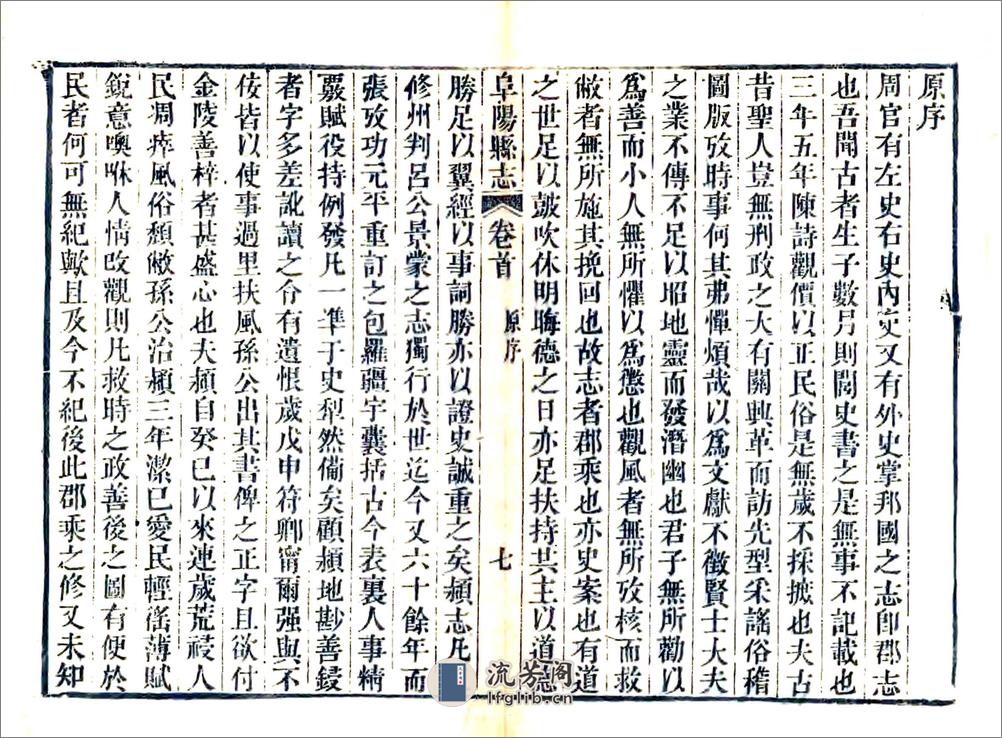 原序
周官有左史右史內史又有外史掌邦國之志卽郡志
也吾聞古者生子數月則閭史書之是無事不記載也
三年五年陳詩觀價以正民俗是無歲不採摭也夫古
昔聖人豈無刑政之大有關興革而訪先型采謠俗稽
圖版攷時事何其弗憚煩哉以爲文獻不徵賢士大夫
之業不傳不足以昭地靈而發潛幽也君子無所勸以
爲善而小人無所懼以爲懲也觀風者無所攷核而救
敝者無所施其挽回也故志者郡乘也亦史案也有道
之世足以鼓吹休明晦德之日亦足扶持其主以道志
阜陽縣志 卷首 原序 七
勝足以翼經以事詞勝亦以證史誠重之矣潁志凡一
修州判呂公景蒙之志獨行於世迄今又六十餘年而
張攷功元平重訂之包羅疆宇囊括古今表裏人事精
覈賦役持例發凡一準于史犁然備矣顧潁地尠善鋟
者字多差訛讀之令有遺恨歲戊申符卿甯爾强與不
佞皆以使事過里扶風孫公出其書俾之正字且欲付
金陵善梓者甚盛心也夫潁自癸巳以來連歲荒祲人
民凋瘁風俗頹敝孫公治潁三年潔已愛民輕徭薄賦
銳意噢咻人情改觀則凡救時之政善後之圖有便於
民者何可無紀歟且及今不紀後此郡乘之修又未知
流芳阁
lfglib.cn